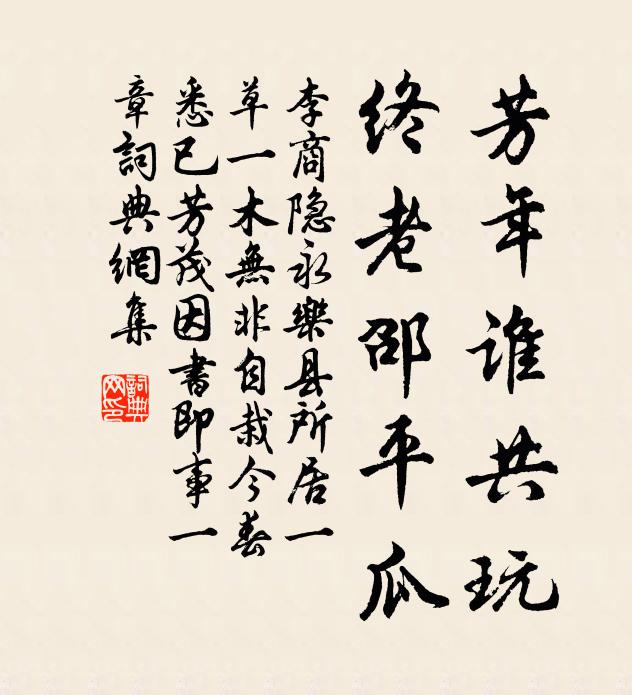 芳年谁共玩
终老邵平瓜
李商隐永樂县所居一
草一木無非自栽今春
悉已芳茂因書即事一
章詞典網集
詞典
网印